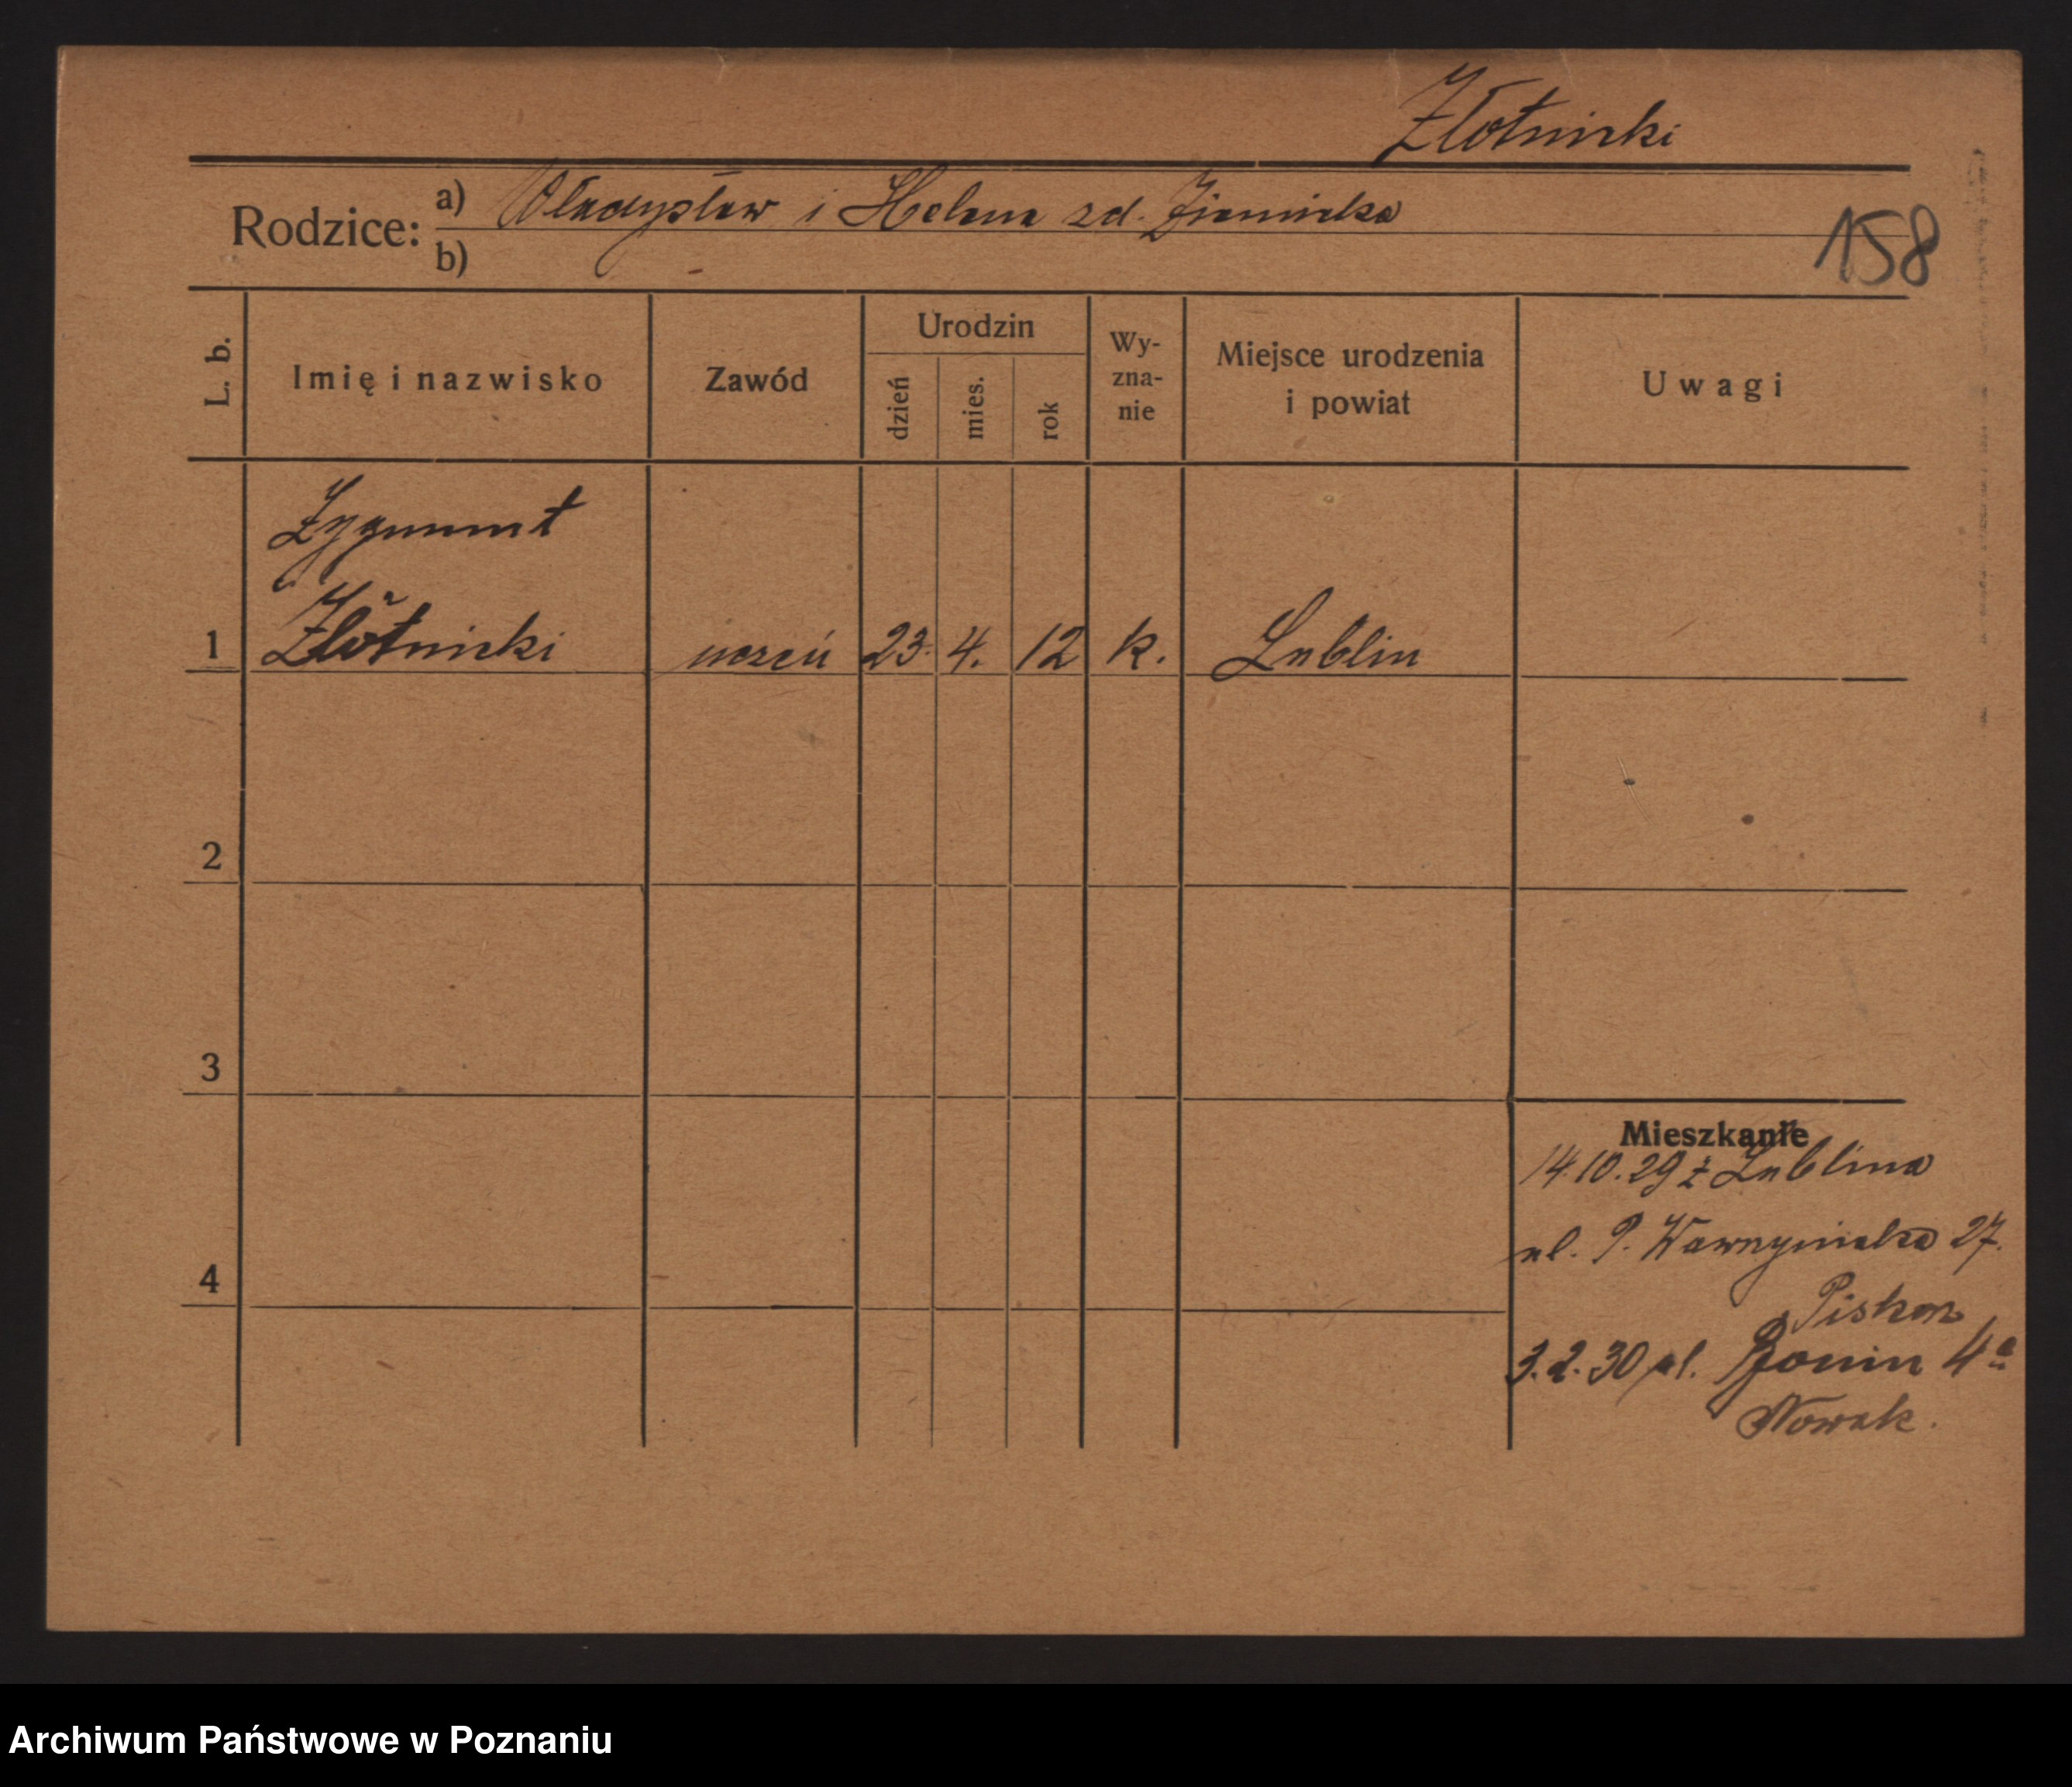 Złotnicki
Rodzice: a) Władysław i Helena zd. Ziemielka
b)
158
L. b.
Imię i nazwisko
Zawód
Urodzin
dzień
mies.
rok
Wy-
zna-
nie
Miejsce urodzenia
i powiat
Uwagi
Zygmunt
1 Złotnicki uczeń 23. 4. 12 k. Lublin
2
3
4
Mieszkanie
14.10.29 z Lublina
ul. P. Wawrzyniaka 27.
3.2.30 pl. 4a
Nowak.
Archiwum Państwowe w Poznaniu